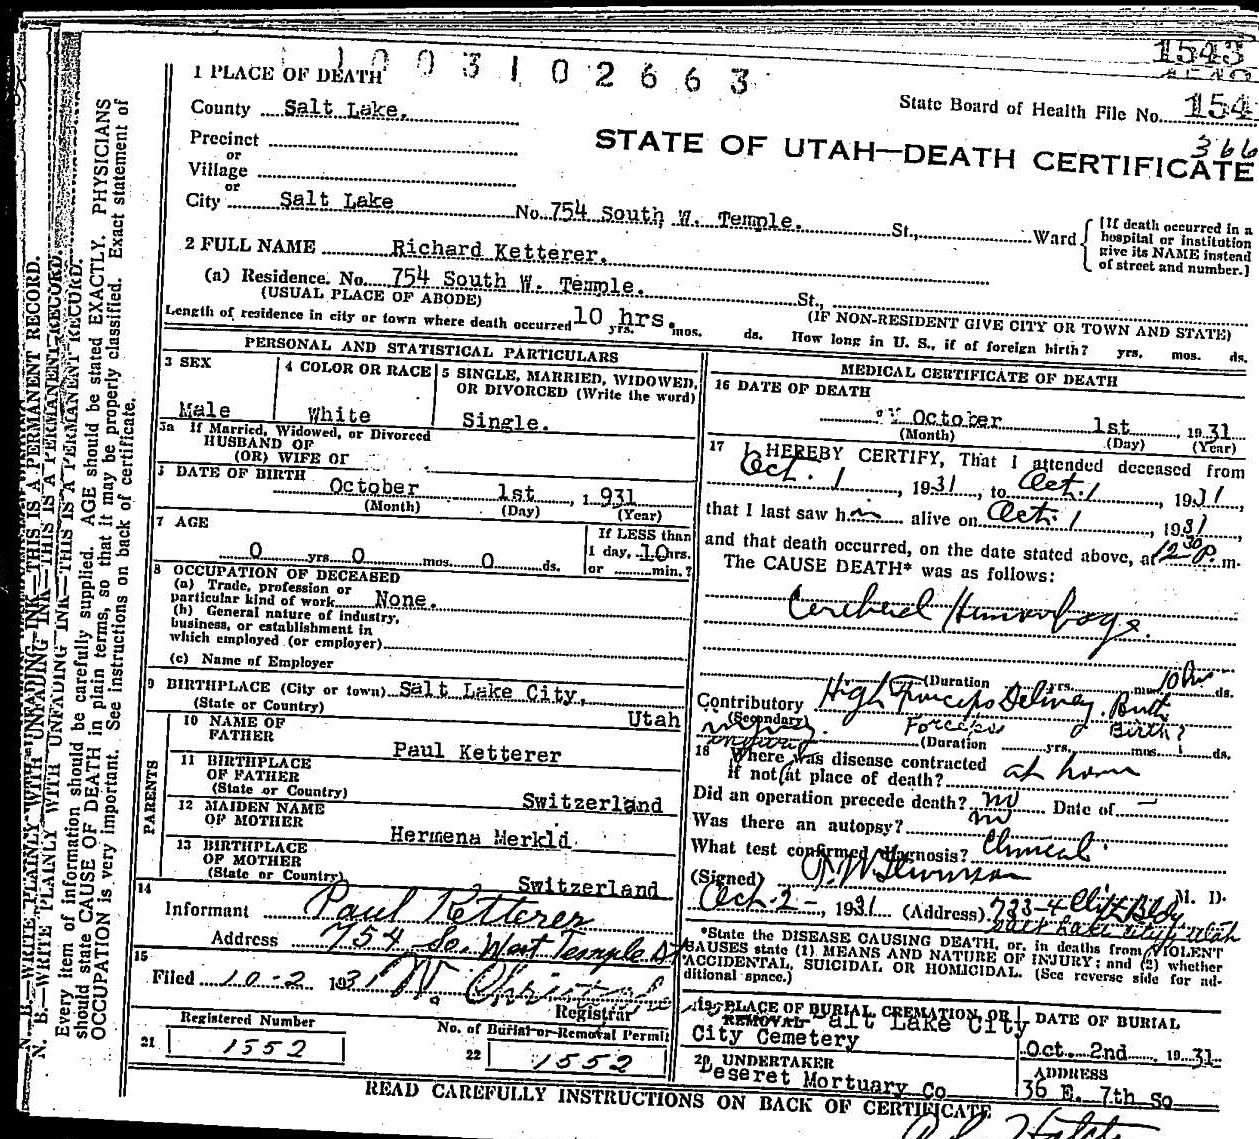 1003102663
1543
1 PLACE OF DEATH
State Board of Health File No. 154
366
County Salt Lake,
STATE OF UTAH—DEATH CERTIFICATE
Precinct
or
Village
or
City Salt Lake No. 754 South W. Temple. St., Ward
[If death occurred in a
hospital or institution
give its NAME instend
of street and number.]
2 FULL NAME Richard Ketterer.
(a) Residence. No. 754 South W. Temple. St.,
(USUAL PLACE OF ABODE)
(IF NON-RESIDENT GIVE CITY OR TOWN AND STATE)
Length of residence in city or town where death occurred 10 hrs. yrs. mos. ds. How long in U. S., if of foreign birth? yrs. mos. ds.
PERSONAL AND STATISTICAL PARTICULARS
3 SEX
Male
4 COLOR OR RACE
White
5 SINGLE, MARRIED, WIDOWED,
OR DIVORCED (Write the word)
Single.
5a If Married, Widowed, or Divorced
HUSBAND OF
(OR) WIFE OF
DATE OF BIRTH
October 1st 1931
(Month) (Day) (Year)
7 AGE
0 yrs. 0 mos. 0 ds.
If LESS than
1 day, 10 hrs.
or min.?
8 OCCUPATION OF DECEASED
(a) Trade, profession or
particular kind of work None.
(b) General nature of industry,
business, or establishment in
which employed (or employer)
(c) Name of Employer
9 BIRTHPLACE (City or town) Salt Lake City,
(State or Country) Utah
PARENTS
10 NAME OF
FATHER
Paul Ketterer
11 BIRTHPLACE
OF FATHER
(State or Country) Switzerland
12 MAIDEN NAME
OF MOTHER
Hermena Merkld
13 BIRTHPLACE
OF MOTHER
(State or Country) Switzerland
14
Informant Paul Ketterer
Address 754 So. West Temple St
15
Filed 10-2 1931
Registrar
Registered Number
21 1552
No. of Burial or Removal Permit
22 1552
MEDICAL CERTIFICATE OF DEATH
16 DATE OF DEATH
October 1st 1931
(Month) (Day) (Year)
17 I HEREBY CERTIFY, That I attended deceased from
Oct. 1, 1931, to Oct. 1, 1931,
that I last saw h m alive on Oct. 1, 1931,
and that death occurred, on the date stated above, at 12 30 P. m.
The CAUSE DEATH* was as follows:
Cerebral Hemorrhage.
(Duration yrs. mos. 10 hrs ds.
Contributory High Forceps Delivery. Birth
(Secondary) injury. Forceps Birth?
injury (Duration yrs. mos. ds.
18 Where was disease contracted
if not at place of death? at home
Did an operation precede death? no Date of —
Was there an autopsy? no
What test confirmed diagnosis? Clinical
(Signed) M. D.
Oct. 2 -, 1931 (Address) 733-4 Clift Bldg
Salt Lake City Utah
*State the DISEASE CAUSING DEATH, or, in deaths from VIOLENT
CAUSES state (1) MEANS AND NATURE OF INJURY; and (2) whether
ACCIDENTAL, SUICIDAL OR HOMICIDAL. (See reverse side for ad-
ditional space.)
19 PLACE OF BURIAL CREMATION, OR
REMOVAL alt Lake City
City Cemetery
DATE OF BURIAL
Oct. 2nd 1931
20 UNDERTAKER
Deseret Mortuary Co
ADDRESS
36 E. 7th So
READ CAREFULLY INSTRUCTIONS ON BACK OF CERTIFICATE
N. B.—WRITE PLAINLY WITH UNFADING INK—THIS IS A PERMANENT RECORD.
Every item of information should be carefully supplied. AGE should be stated EXACTLY. PHYSICIANS
should state CAUSE OF DEATH in plain terms, so that it may be properly classified. Exact statement of
OCCUPATION is very important. See instructions on back of certificate.